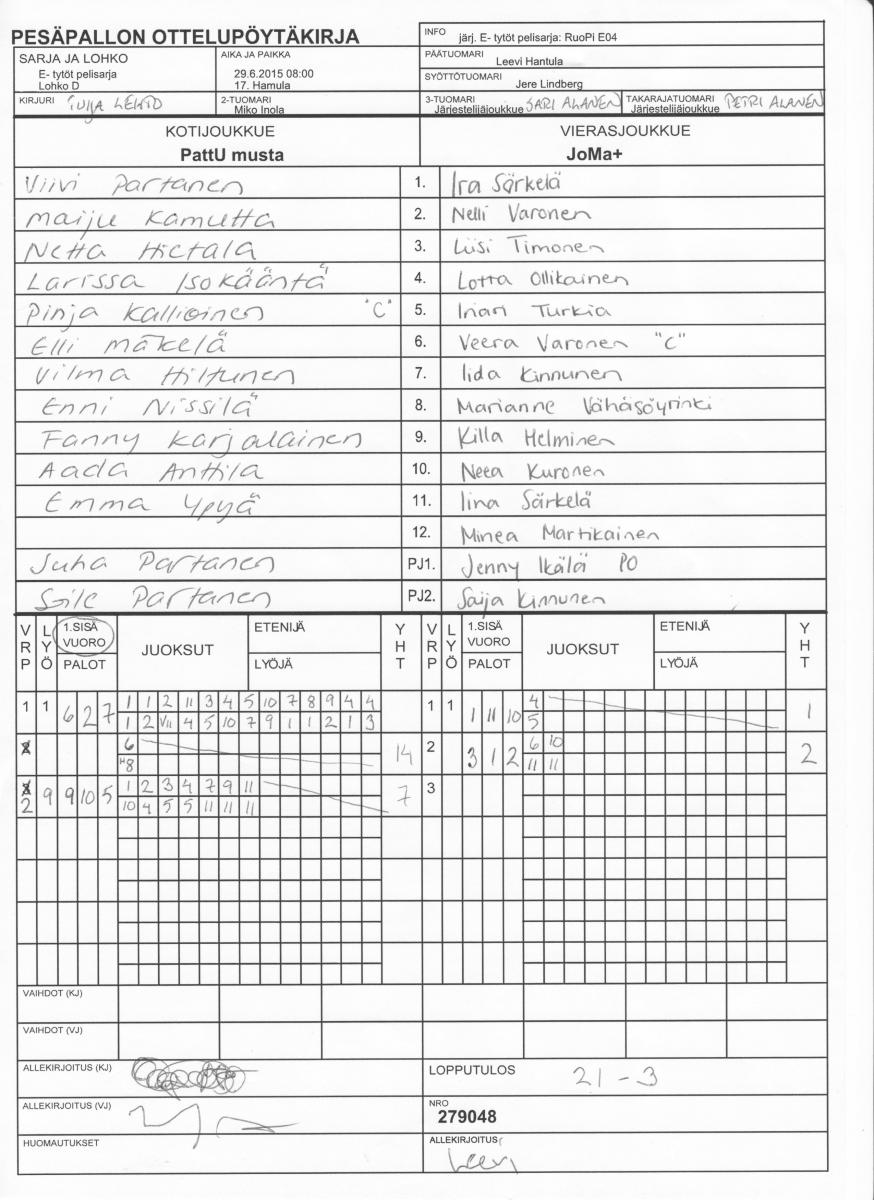 PESÄPALLON OTTELUPÖYTÄKIRJA
INFO järj. E- tytöt pelisarja: RuoPi E04
SARJA JA LOHKO
E- tytöt pelisarja
Lohko D
AIKA JA PAIKKA
29.6.2015 08:00
17. Hamula
PÄÄTUOMARI
Leevi Hantula
SYÖTTÖTUOMARI
Jere Lindberg
KIRJURI TUIJA LEHTO
2-TUOMARI
Miko Inola
3-TUOMARI
Järjestelijäjoukkue SARI ALANEN
TAKARAJATUOMARI
Järjestelijäjoukkue PETRI ALANEN
KOTIJOUKKUE VIERASJOUKKUE
PattU musta JoMa+
Viivi Partanen 1. Ira Särkelä
Maiju Kamutta 2. Nelli Varonen
Netta Hietala 3. Liisi Timonen
Larissa Isokääntä 4. Lotta Ollikainen
Pinja Kallioinen "C" 5. Inari Turkia
Elli Mäkelä 6. Veera Varonen "C"
Vilma Hiltunen 7. Iida Kinnunen
Enni Nissilä 8. Marianne Vähäsöyrinki
Fanny Karjalainen 9. Killa Helminen
Aada Anttila 10. Neea Kuronen
Emma Ypyä 11. Iina Särkelä
12. Minea Martikainen
Juha Partanen PJ1. Jenny Ikälä PO
Partanen PJ2. Saija Kinnunen
VRP LYÖ 1.SISÄ VUORO PALOT JUOKSUT ETENIJÄ LYÖJÄ YHT VRP LYÖ 1.SISÄ VUORO PALOT JUOKSUT ETENIJÄ LYÖJÄ YHT
1 1 6 2 7 1 1 2 11 3 4 5 10 7 8 9 4 4 1 1 1 11 10 4 1
1 2 VII 4 5 10 7 9 1 1 2 1 3 5
2 6 14 2 3 1 2 6 10 2
H8 11 11
2 9 9 10 5 1 2 3 4 7 9 11 7 3
10 4 5 5 11 11 11
VAIHDOT (KJ)
VAIHDOT (VJ)
ALLEKIRJOITUS (KJ) LOPPUTULOS 21 - 3
ALLEKIRJOITUS (VJ) NRO
279048
HUOMAUTUKSET ALLEKIRJOITUS
Leevi